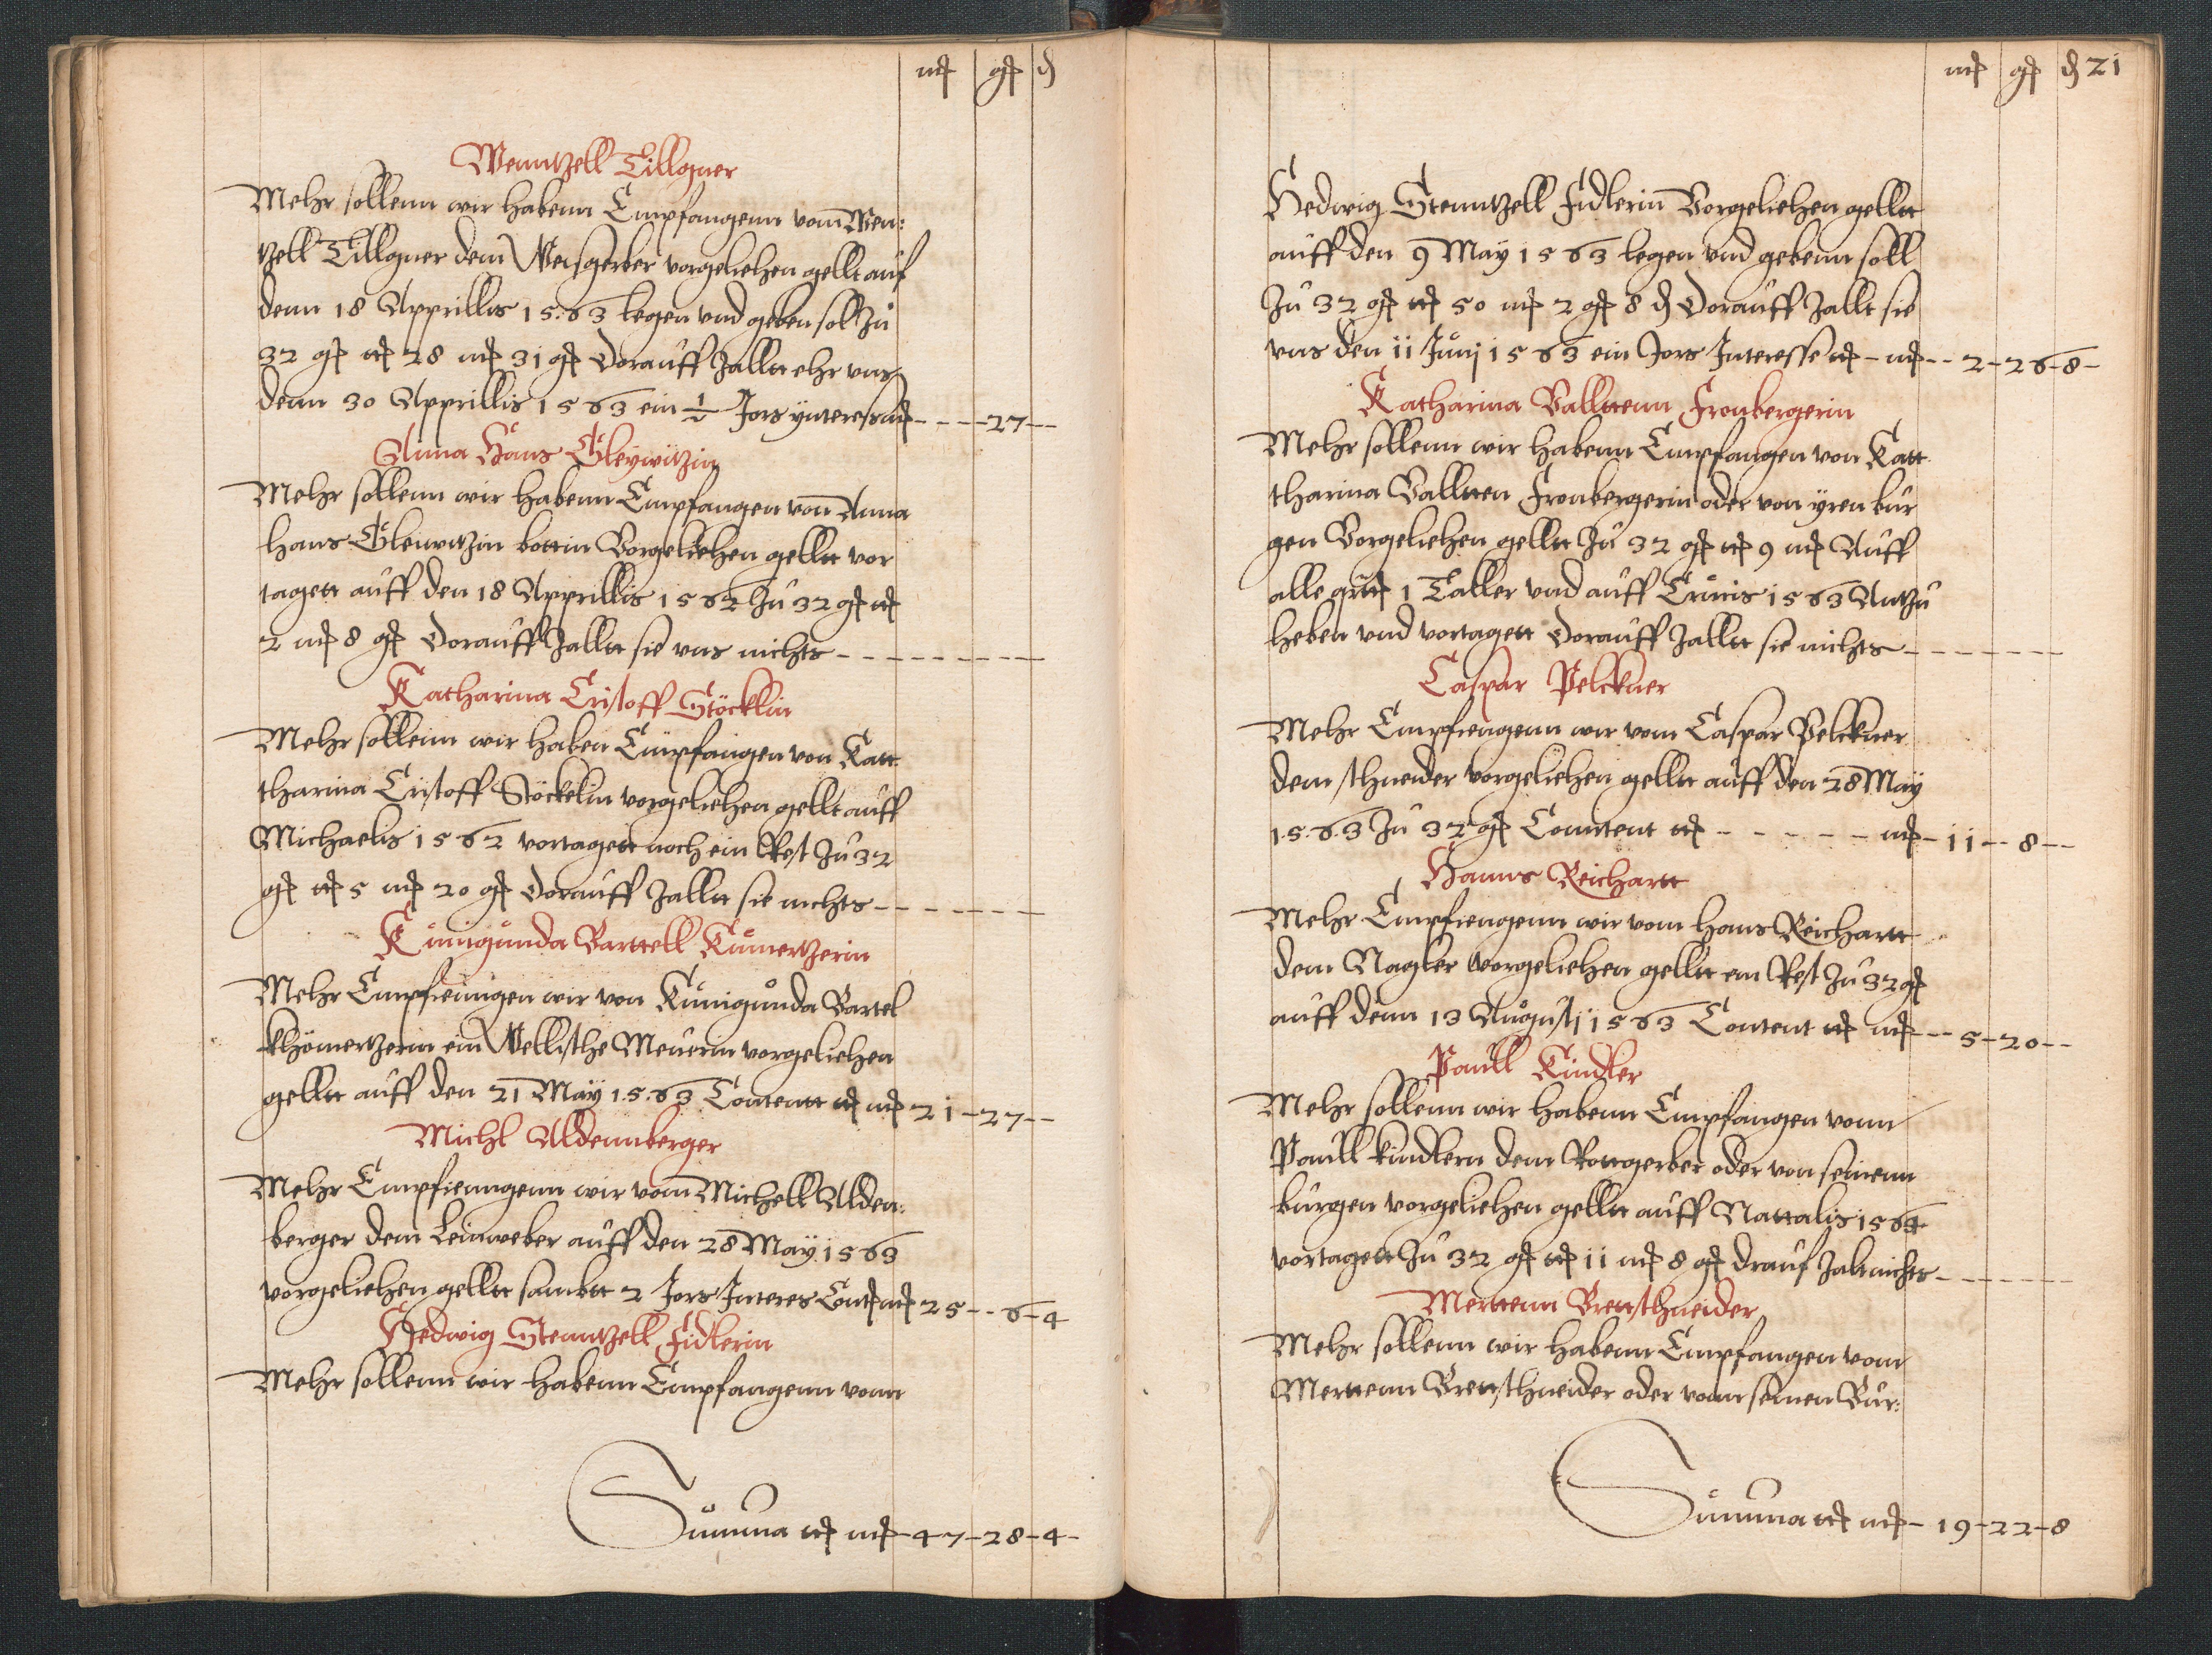 mͬ gͬ ₰
Wenntzell Tillgner
Mehr sollenn wir habenn Empfangenn vom Wen:
tzell Tillgner dem Weisgerber vorgeliehen gellt auf
denn 18 Apprillis 1563 legen vnd geben soll Zu
32 gͬ tͭ 28 mͬ 31 gͬ Dorauff Zalltt ehr vns
denn 30 Apprillis 1563 ein ½ Jors ynteres mͬ - - - - 27 - -
Anna Hans Gleywitzin
Mehr sollenn wir habenn Empfangen von Anna
hans Gleiwitzin bottin Vorgeliehen gelltt vor
tagett auff den 18 Apprillis 1562 Zu 32 gͬ tͭ
2 mͬ 8 gͬ Dorauff Zalltt sie vns nichts - - - - - - - - - -
Katharina Cristoff Stöcklin
Mehr sollenn wir haben Empfangen von Katt
tharina Cristoff Stöckelin vorgeliehen gellt auff
Michaelis 1562 vortagett noch ein Rest Zu 32
gͬ tͭ 5 mͬ 20 gͬ Dorauff Zalltt sie nichts - - - - - - - -
Kunigunda Barttell Kumertzerin
Mehr Empfienngen wir von Kunigunda Bartel
khömertzerin ein Wellische Meuerin vorgeliehen
gelltt auff den 21 May 1563 Contentt tͭ mͬ 21 - 27 - -
Michl Aldennberger
Mehr Empfienngenn wir vom Michell Alden:
berger dem Leinweber auff den 28 May 1563
vorgeliehen gelltt sambtt 2 Jors Interes Contͭ mͬ 25 - - 6 - 4
Hedwig Stenntzell Fidlerin
Mehr sollenn wir habenn Empfangenn vonn
Summa tͭ mͬ - 47 - 28 - 4 -
mͬ gͬ ₰ 21
Hedwig Stenntzell Fidlerin Vorgeliehen gelltt
auff den 9 May 1563 legen vnd gebenn soll
Zu 32 gͬ tͭ 50 mͬ 2 gͬ 8 ₰ Dorauff Zallt sie
vns den 11 Junj 1563 ein Jors Interesse tͭ - mͬ - - 2 - 26 - 8 -
Katharina Valltenn Fronbergerin
Mehr sollenn wir habenn Empfangen von Katt
tharina Vallten Fronbergerin oder von yren bur
gen Vorgeliehen gelltt Zu 32 gͬ tͭ 9 mͬ Auff
alle 1 Taller vnd auff Crucis 1563 Antzu
heben vnd vortagett Dorauff Zalltt sie nichts - - - - - - - -
Caspar Pelckner
Mehr Empfiengenn wir vom Caspar Pelckner
dem schneider vorgeliehen gelltt auff den 28 May
1563 Zu 32 gͬ Conntent tͭ - - - - - - mͬ - 11 - - 8 - -
Hanns Reichartt
Mehr Empfiengenn wir vom Hans Reichartt
dem Nagler vorgeliehen gelltt ein Rest Zu 32 gͬ
auff denn 13 Augustj 1563 Content tͭ mͬ - - 5 - 20 - -
Paull Kindler
Mehr sollenn wir habenn Empfangen vonn
Paull kindlern dem Rottgerber oder von seinenn
burgen vorgeliehen gelltt auff Nattalis 1564
vortagett Zu 32 gͬ tͭ 11 mͬ 8 gͬ drauf Zalt nichts - - - - - - -
Mertenn Brettschneider
Mehr sollenn wir habenn Empfangen vom
Mertenn Brettschneider oder vonn seinen Bur:
Summa tͭ mͬ - 19 - 22 - 8